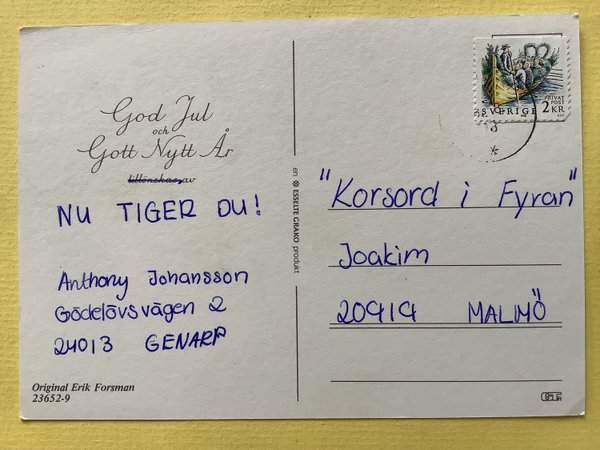 God Jul
och
Gott Nytt År
tillönskas av
NU TIGER DU!
Anthony Johansson
Gödelövsvägen 2
24013 GENARP
Original Erik Forsman
23652-9
en ESSELTE GRAKO produkt
PRIVAT
POST
SVERIGE 2KR
"Korsord i Fyran"
Joakim
20919 MALMÖ